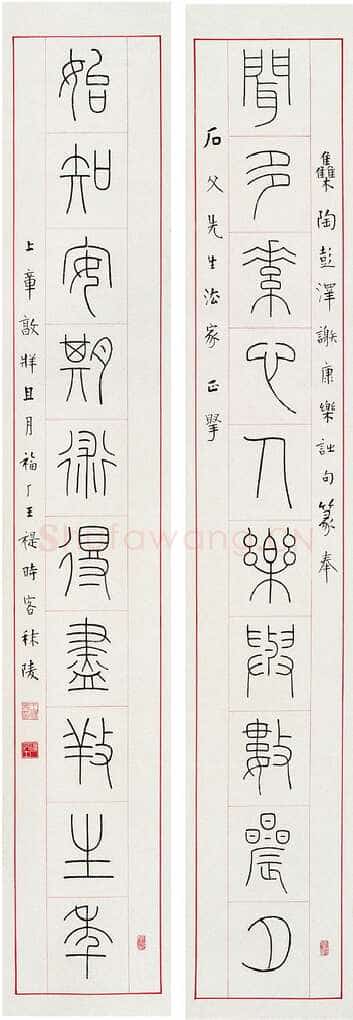 雧陶彭澤謝康樂詩句篆奉
聞多素心人樂與數晨夕
石父先生法家正
始知安期術得盡養生年
上章敦牂且月福厂王禔時客秣陵
Shufawang.CN